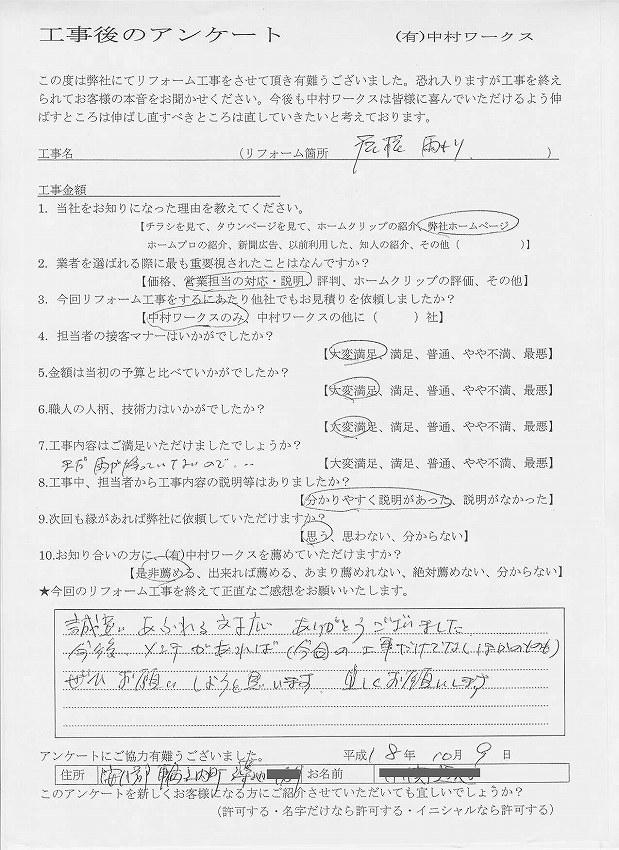 工事後のアンケート (有)中村ワークス
この度は弊社にてリフォーム工事をさせて頂き有難うございました。恐れ入りますが工事を終え
られてお客様の本音をお聞かせください。今後も中村ワークスは皆様に喜んでいただけるよう伸
ばすところは伸ばし直すべきところは直していきたいと考えております。
工事名 (リフォーム箇所 屋根 雨もり )
工事金額
1. 当社をお知りになった理由を教えてください。
【チラシを見て、タウンページを見て、ホームクリップの紹介、弊社ホームページ
ホームプロの紹介、新聞広告、以前利用した、知人の紹介、その他（ )】
2. 業者を選ばれる際に最も重要視されたことはなんですか？
【価格、営業担当の対応・説明、評判、ホームクリップの評価、その他】
3. 今回リフォーム工事をするにあたり他社でもお見積りを依頼しましたか？
【中村ワークスのみ、中村ワークスの他に（ ）社】
4. 担当者の接客マナーはいかがでしたか？
【大変満足、満足、普通、やや不満、最悪】
5.金額は当初の予算と比べていかがでしたか？
【大変満足、満足、普通、やや不満、最悪】
6.職人の人柄、技術力はいかがでしたか？
【大変満足、満足、普通、やや不満、最悪】
7.工事内容はご満足いただけましたでしょうか？
まだ 雨が降っていないので…
【大変満足、満足、普通、やや不満、最悪】
8.工事中、担当者から工事内容の説明等はありましたか？
【分かりやすく説明があった、説明がなかった】
9.次回も縁があれば弊社に依頼していただけますか？
【思う、思わない、分からない】
10.お知り合いの方に、(有)中村ワークスを薦めていただけますか？
【是非薦める、出来れば薦める、あまり薦めれない、絶対薦めない、分からない】
★今回のリフォーム工事を終えて正直なご感想をお願いいたします。
誠意 あふれる 対応 ありがとうございました
今後 メンテがあれば（今回の工事だけでなくほかのものも）
ぜひ お願い しようと思います 宜しくお願いします
アンケートにご協力有難うございました。 平成18年10月9日
住所 輪之内町 お名前
このアンケートを新しくお客様になる方にご紹介させていただいても宜しいでしょうか？
（許可する・名字だけなら許可する・イニシャルなら許可する）